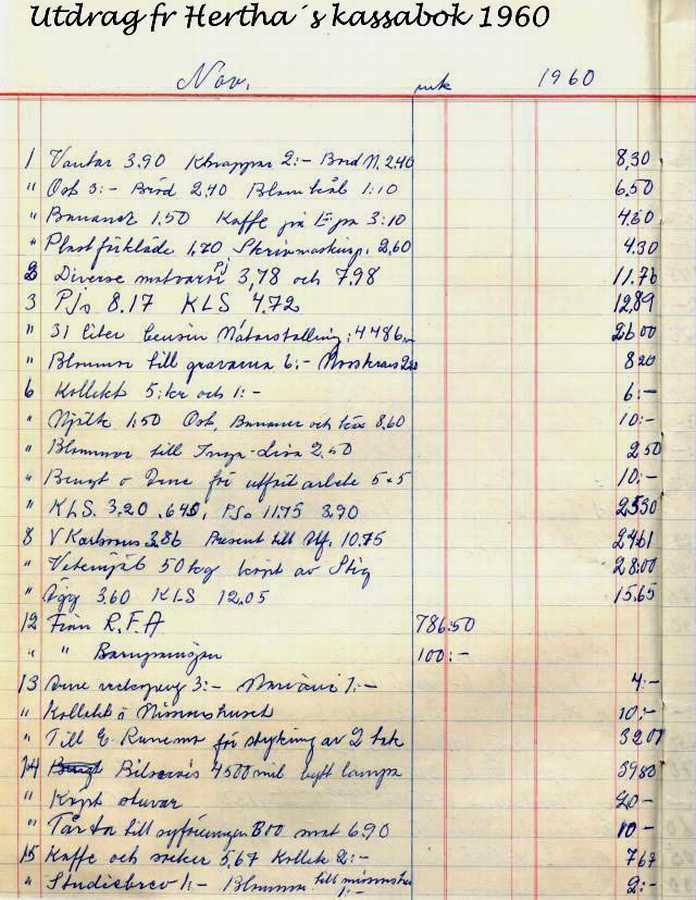 Utdrag fr Hertha´s kassabok 1960
Nov. mk 1960
1 Vantar 3.90 Knappar 2:- Bröd N. 2.40 8,30
" Ost 3:- Bröd 2.40 Blomkål 1:10 6.50
" Bananer 1.50 Kaffe på Epa 3:10 4.60
" Plastförkläde 1,70 Skrivmaskinp. 2,60 4.30
2 Diverse matvaror Pj 3,78 och 7.98 11.76
3 PJs 8.17 KLS 4.72 12,89
" 31 liter bensin Mätarställning: 4486 26 00
" Blommor till gravarna 6:- Mosskrans 2.20 8 20
6 Kollekt 5: kr och 1:- 6:-
" Mjölk 1:50 Ost, Bananer och 8.60 10:-
" Blommor till 2.50 2 50
" Bengt o Dene för utfört arbete 5+5 10:-
" KLS. 3.20 .645, PJs 11.75 3.90 2530
8 V Karlssons 3.86 Present till Ulf. 10.75 2461
" Vetemjöl 50 kg köpt av Stig 28:00
" Ägg 3.60 KLS 12.05 15.65
12 Från R.F.A 786:50
" " Barnpengar 100:-
13 Dene veckopeng 3:- 1:- 4:-
" Kollekt i Missionshuset 10:-
" Till E. för strykning av 2 tak 3207
14 Bilservis 4500 mil bytt lampa 3980
" Köpt 20-
" Tårta till syföreningen 800 mat 6.90 10-
15 Kaffe och socker 5,67 Kollekt 2:- 767
" Studiebrev 1:- Blommor till 1:- 2:-